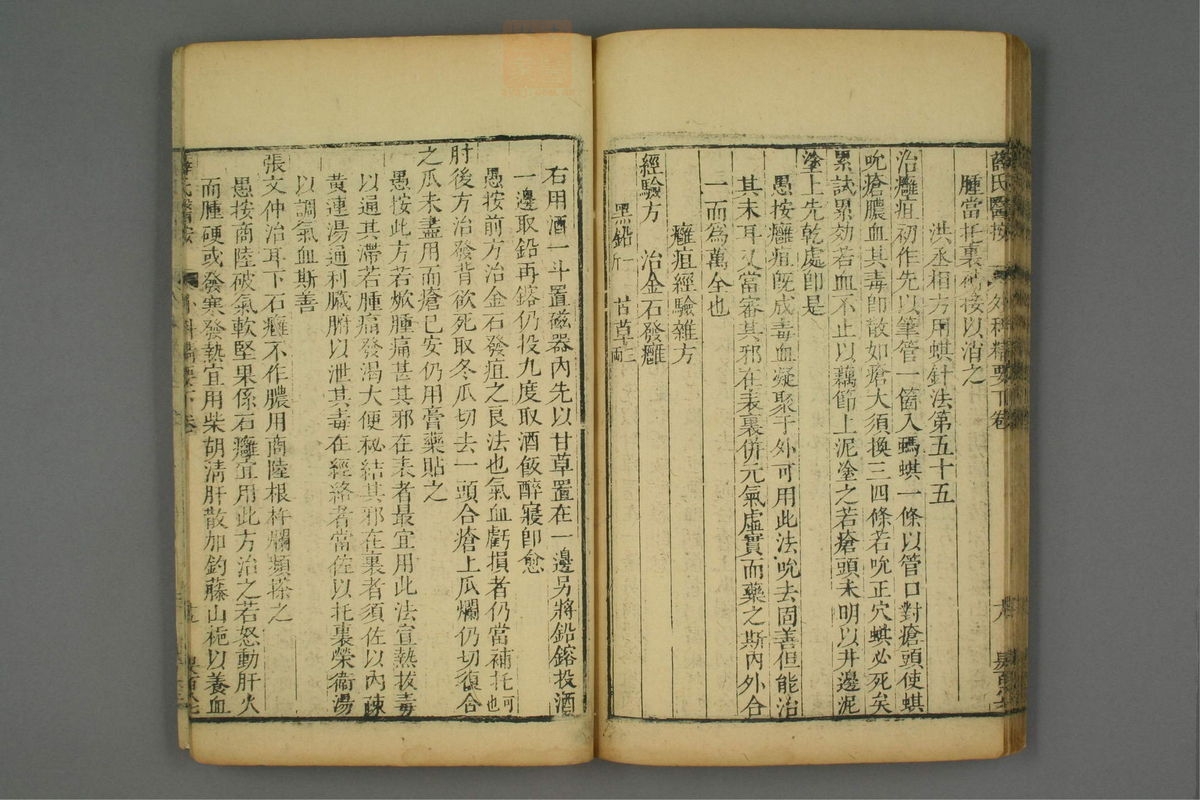 薛氏醫按 外科精要下卷
腫當托裏神接以消之
洪丞相方用蜞針法第五十五
治癰疽初作先以筆管一箇入螞蜞一條以管口對瘡頭使蜞
吮瘡膿血其毒卽散如瘡大須換三四條若吮正穴蜞必死矣
累試累効若血不止以藕節上泥塗之若瘡頭未明以井邊泥
塗上先乾處卽是
愚按癰疽旣成毒血凝聚于外可用此法吮去固善但能治
其未耳又當審其邪在表裏併元氣虛實而藥之斯內外合
一而爲萬全也
癰疽經驗雜方
經驗方 治金石發癰
黑鉛一斤 甘草三兩
右用酒一斗置磁器內先以甘草置在一邊另將鉛鎔投酒
一邊取鉛再鎔仍投九度取酒飯醉寢卽愈
愚按前方治金石發疽之良法也氣血虧損者仍當補托可也
肘後方治發背欲死取冬瓜切去一頭合瘡上瓜爛仍切復合
之瓜未盡用而瘡已安仍用膏藥貼之
愚按此方若焮腫痛甚其邪在表者最宜用此法宣熱拔毒
以通其滯若腫痛發渴大便秘結其邪在裏者須佐以內疎
黃連湯通利臟腑以泄其毒在經絡者當佐以托裏榮衞湯
以調氣血斯善
張文仲治耳下石癰不作膿用商陸根杵爛頻搽之
愚按商陸破氣軟堅果係石癰宜用此方治之若怒動肝火
而腫硬或發寒發熱宜用柴胡淸肝散加釣藤山梔以養血